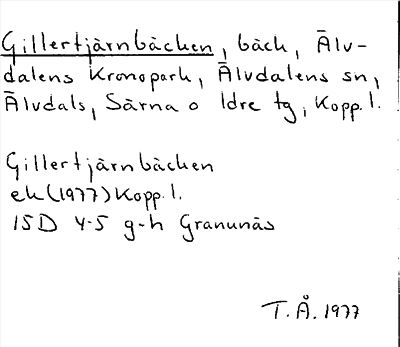 Gillertjärnbäcken, bäck, Älv-
dalens Kronopark, Älvdalens sn,
Älvdals, Särna o Idre tg, Kopp. l.
Gillertjärnbäcken
ek (1977) Kopp. l.
15D 4-5 g-h Granunäs
T. Å. 1977